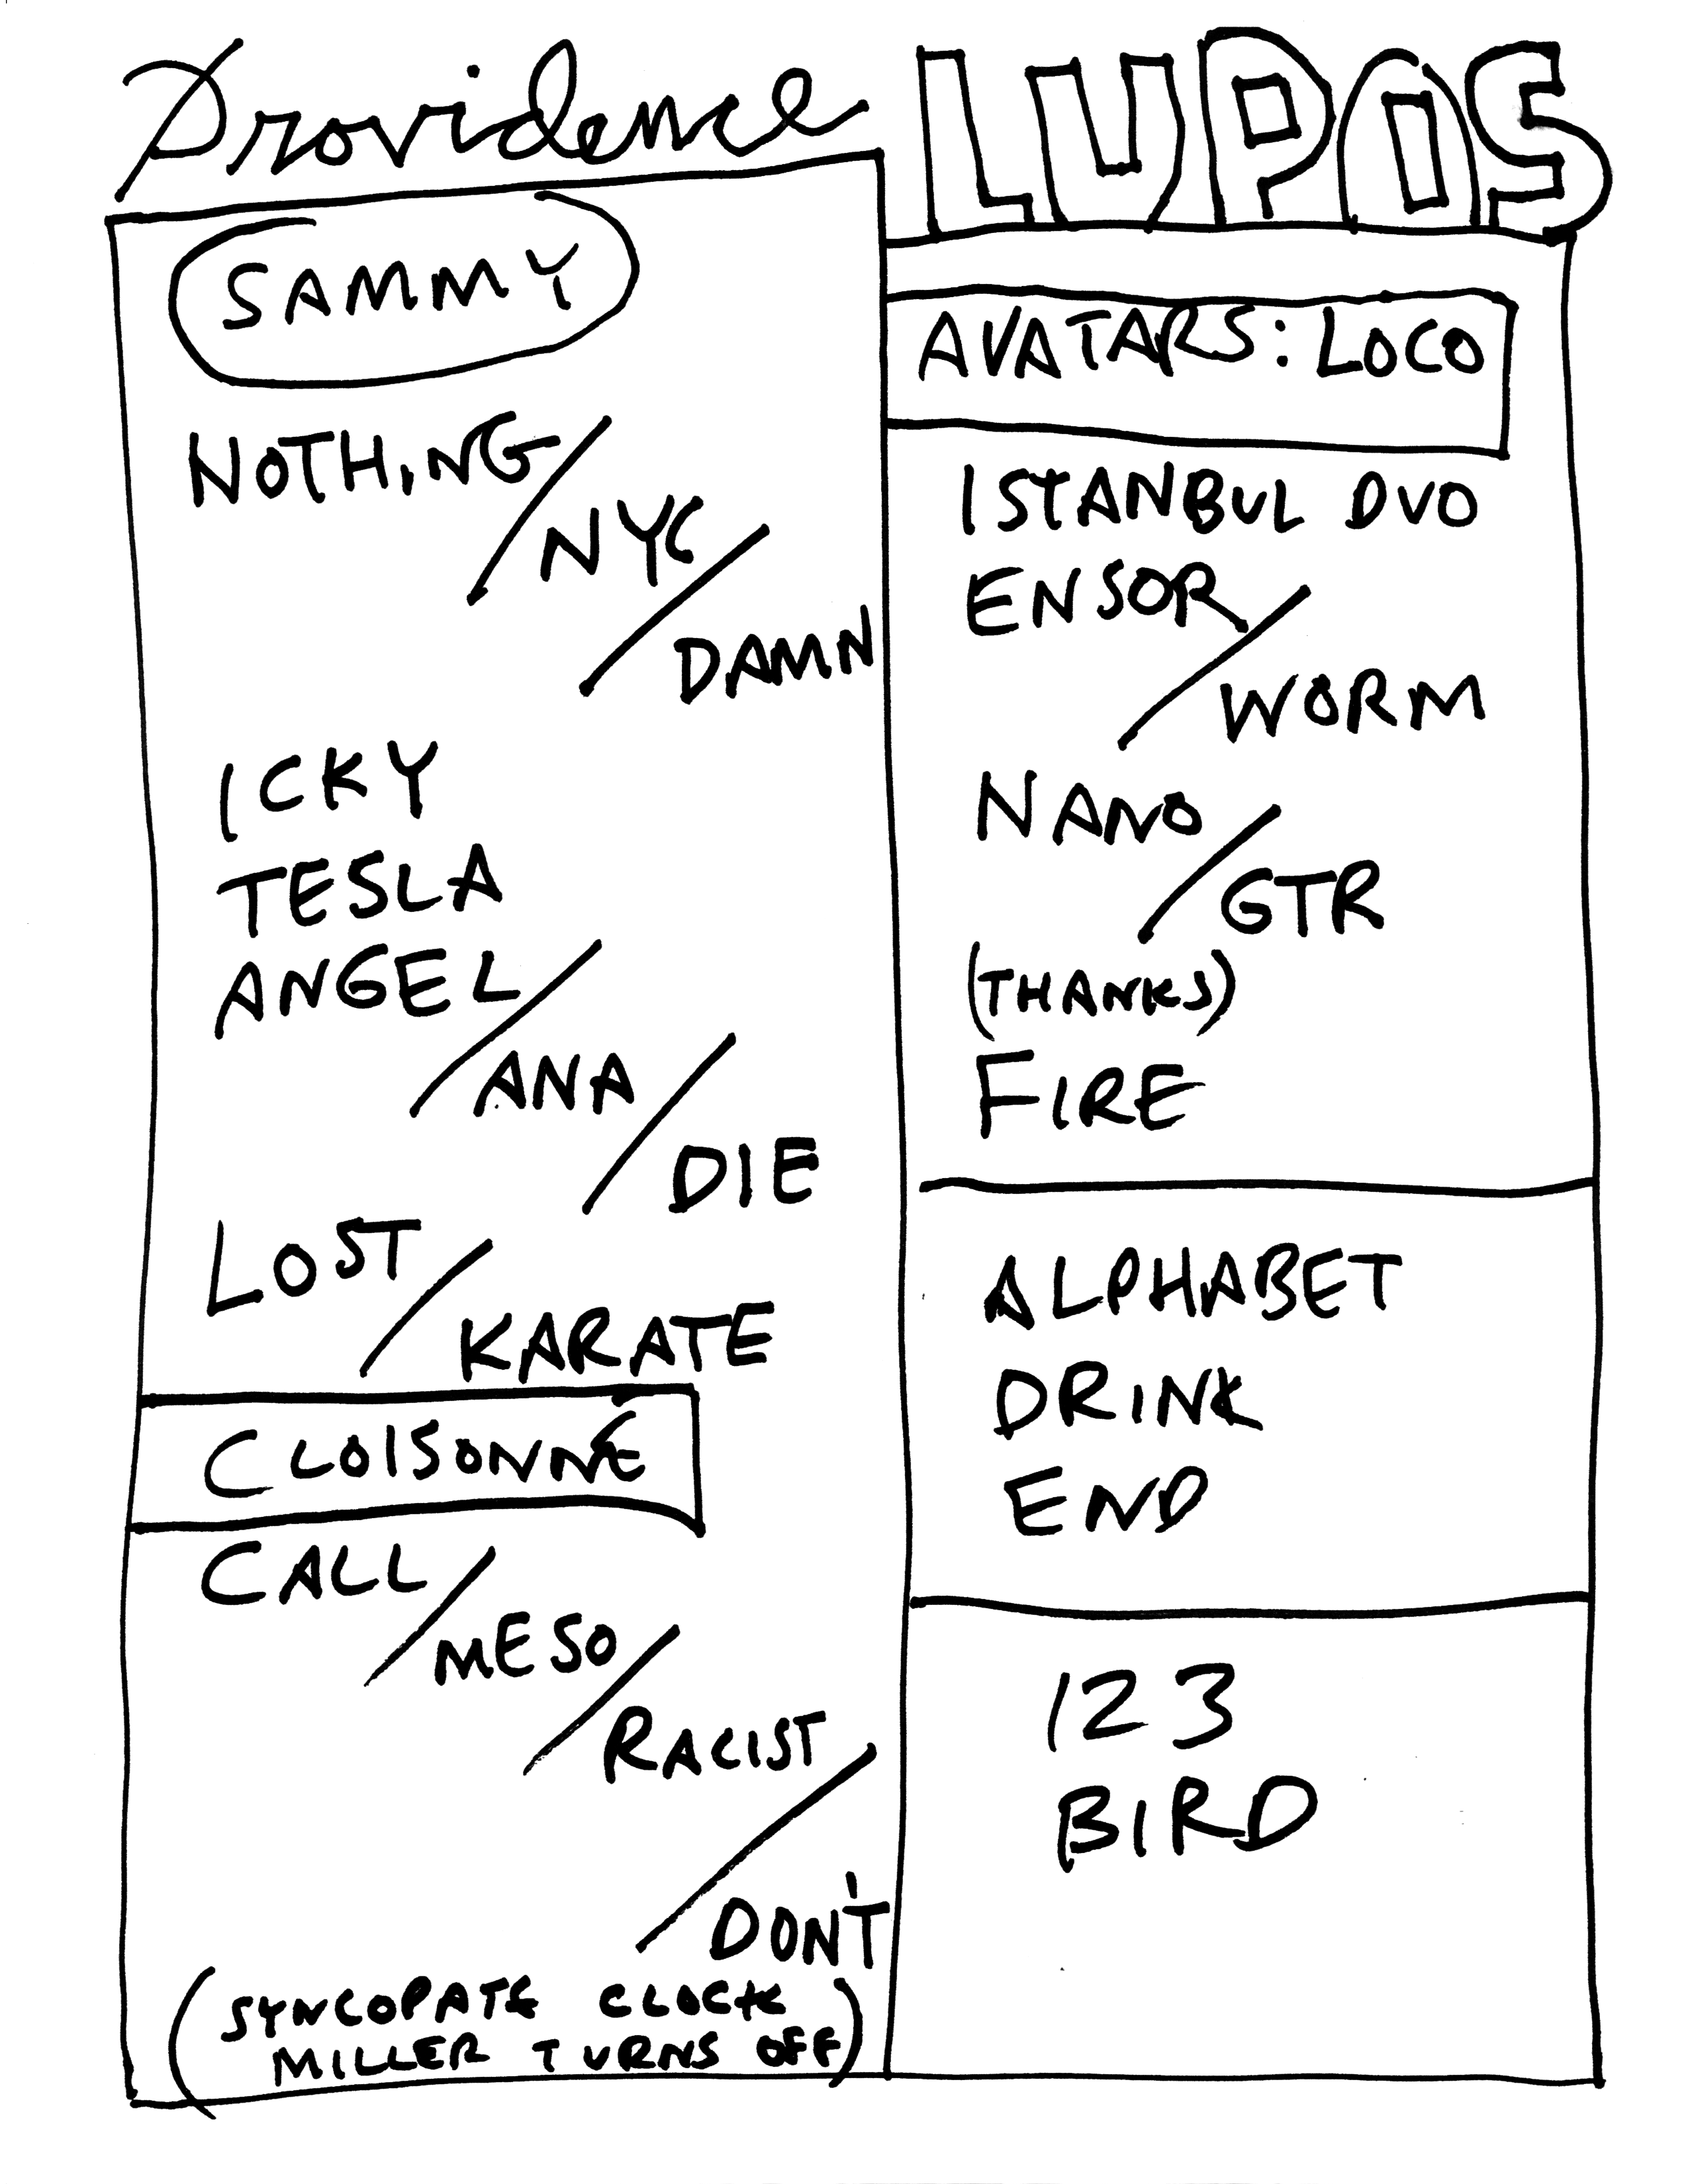 Providence LUPOS
SAMMY
NOTHING/
NYC/
DAMN
ICKY
TESLA
ANGEL/
ANA/
DIE
LOST/
KARATE
CLOISONNÉ
CALL/
MESO/
RACIST/
DON'T
(SYNCOPATE CLOCK
MILLER TURNS OFF)
AVATARS: LOCO
ISTANBUL DUO
ENSOR/
WORM
NANO/
GTR
(THANKS)
FIRE
ALPHABET
DRINK
END
123
BIRD